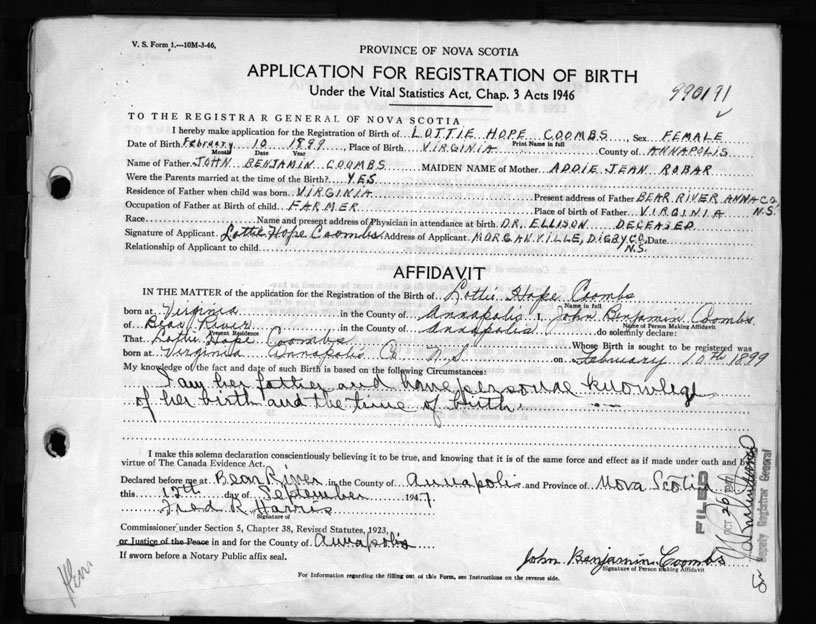 V. S. Form 1.—10M-3-46.
PROVINCE OF NOVA SCOTIA
APPLICATION FOR REGISTRATION OF BIRTH
Under the Vital Statistics Act, Chap. 3 Acts 1946
990191
TO THE REGISTRAR GENERAL OF NOVA SCOTIA
I hereby make application for the Registration of Birth of LOTTIE HOPE COOMBS, Sex FEMALE
Print Name in full
Date of Birth February 10 1899 Place of Birth VIRGINIA County of ANNAPOLIS
Month Date Year
Name of Father JOHN BENJAMIN COOMBS MAIDEN NAME of Mother ADDIE JEAN ROBAR
Were the Parents married at the time of the Birth? YES
Residence of Father when child was born VIRGINIA Present address of Father BEAR RIVER ANNA CO. N.S.
Occupation of Father at Birth of child FARMER Place of birth of Father VIRGINIA
Race Name and present address of Physician in attendance at birth DR. ELLISON DECEASED
Signature of Applicant Lottie Hope Coombs Address of Applicant MORGANVILLE, DIGBY CO. N.S. Date
Relationship of Applicant to child
AFFIDAVIT
IN THE MATTER of the application for the Registration of the Birth of Lottie Hope Coombs
Name in full
born at Virginia in the County of Annapolis I, John Benjamin Coombs
Name of Person Making Affidavit
of Bear River in the County of Annapolis do solemnly declare:
Present Residence
That Lottie Hope Coombs Whose Birth is sought to be registered was
born at Virginia Annapolis Co N.S on February 10th 1899
My knowledge of the fact and date of such Birth is based on the following Circumstances:
I am her father and have personal knowledge
of her birth and the time of birth.
I make this solemn declaration conscientiously believing it to be true, and knowing that it is of the same force and effect as if made under oath and by
virtue of The Canada Evidence Act.
Declared before me at Bear River in the County of Annapolis and Province of Nova Scotia
this 12th day of September 1947.
Fred R Harris
Signature of
Commissioner under Section 5, Chapter 38, Revised Statutes, 1923,
or Justice of the Peace in and for the County of Annapolis
If sworn before a Notary Public affix seal.
John Benjamin Coombs
Signature of Person making Affidavit
For Information regarding the filling out of this Form, see Instructions on the reverse side.
FILED
OCT 26 1947
Deputy Registrar General